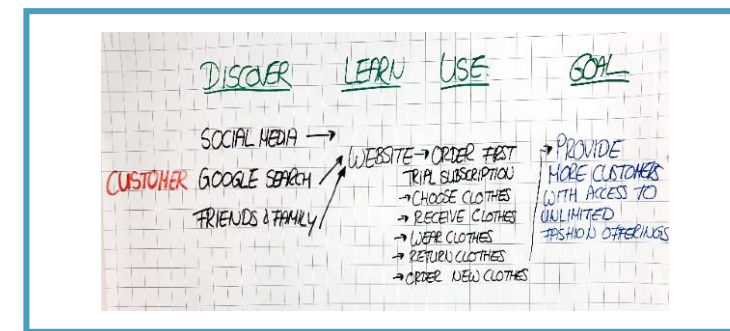 DISCOVER LEARN USE GOAL
SOCIAL MEDIA →
CUSTOMER GOOGLE SEARCH
FRIENDS & FAMILY
WEBSITE → ORDER FIRST
TRIAL SUBSCRIPTION
→ CHOOSE CLOTHES
→ RECEIVE CLOTHES
→ WEAR CLOTHES
→ RETURN CLOTHES
→ ORDER NEW CLOTHES
→ PROVIDE
MORE CUSTOMERS
WITH ACCESS TO
UNLIMITED
FASHION OFFERINGS